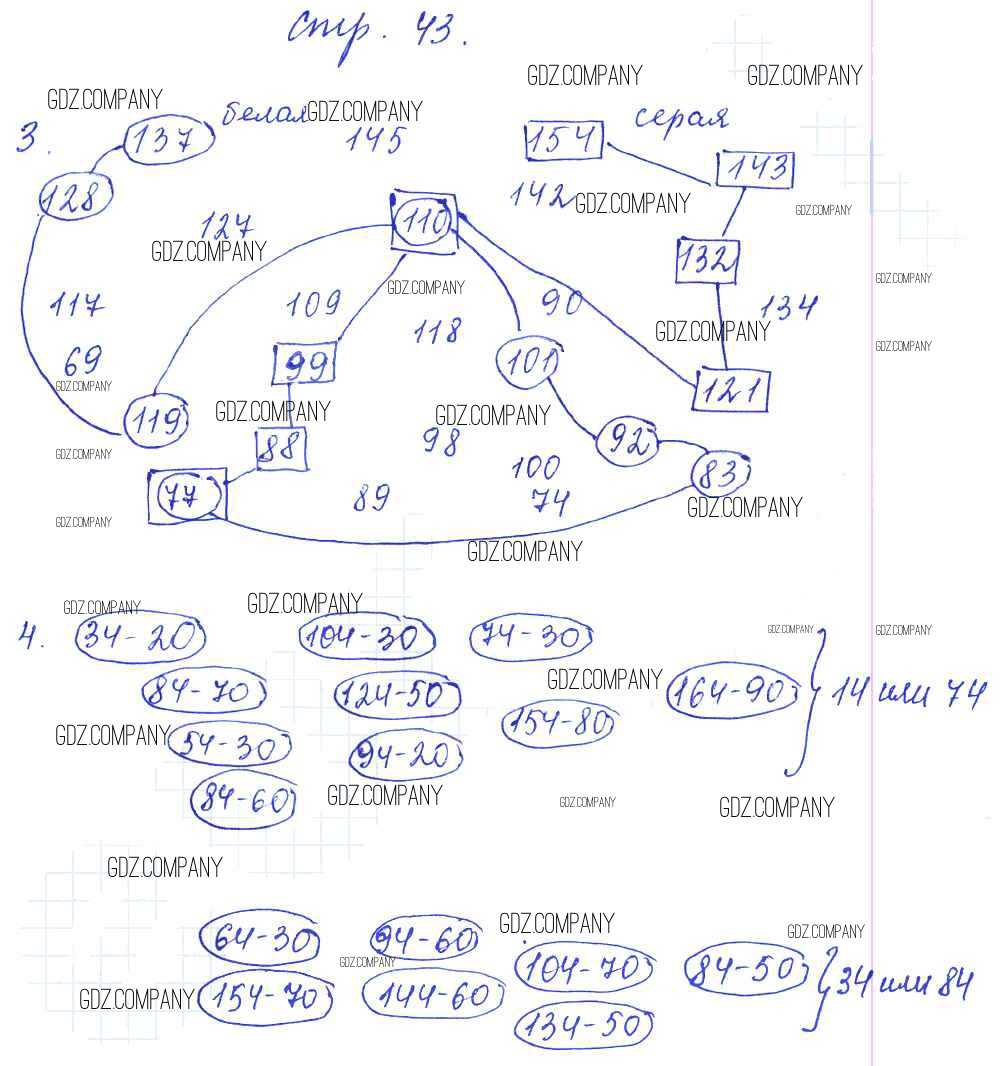 стр. 43.
GDZ.COMPANY GDZ.COMPANY
GDZ.COMPANY белая GDZ.COMPANY серая
3. 137 145 154 143
128 142 GDZ.COMPANY GDZ.COMPANY
127 110
GDZ.COMPANY 132 GDZ.COMPANY
GDZ.COMPANY
117 109 90 134
118 GDZ.COMPANY
69 99 101 GDZ.COMPANY
GDZ.COMPANY 121
GDZ.COMPANY GDZ.COMPANY
119 88 98 92
GDZ.COMPANY 100 83
77 89 74 GDZ.COMPANY
GDZ.COMPANY GDZ.COMPANY
GDZ.COMPANY GDZ.COMPANY
4. 34-20 104-30 74-30 GDZ.COMPANY GDZ.COMPANY
84-70 124-50 GDZ.COMPANY 164-90 } 14 или 74
GDZ.COMPANY 54-30 94-20 154-80
84-60 GDZ.COMPANY GDZ.COMPANY GDZ.COMPANY
GDZ.COMPANY
64-30 94-60 GDZ.COMPANY GDZ.COMPANY
GDZ.COMPANY 104-70 84-50 } 34 или 84
GDZ.COMPANY 154-70 144-60
134-50